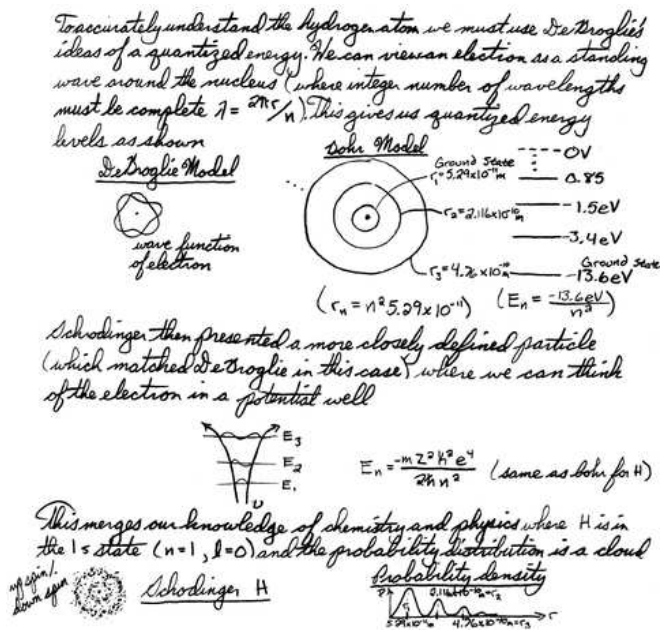 To accurately understand the hydrogen atom we must use DeBroglie's
ideas of a quantized energy. We can view an electron as a standing
wave around the nucleus (where integer number of wavelengths
must be complete λ = 2πr/n). This gives us quantized energy
levels as shown
DeBroglie Model
wave function
of electron
Bohr Model
Ground State
r₁=5.29x10⁻¹¹m
r₂=2.116x10⁻¹⁰m
r₃=4.76x10⁻¹⁰m
(rₙ = n²5.29x10⁻¹¹)
0V
0.85
-1.5eV
-3.4eV
Ground State
-13.6eV
(Eₙ = -13.6eV/n²)
Schrodinger then presented a more closely defined particle
(which matched DeBroglie in this case) where we can think
of the electron in a potential well
E₃
E₂
E₁
U
Eₙ = -mZ²k²e⁴/2ħn² (same as bohr for H)
This merges our knowledge of chemistry and physics where H is in
the 1s state (n=1, l=0) and the probability distribution is a cloud
up spin/
down spin
Schodinger H
Probability density
P
r
5.29x10⁻¹¹m
4.76x10⁻¹⁰m=r₃